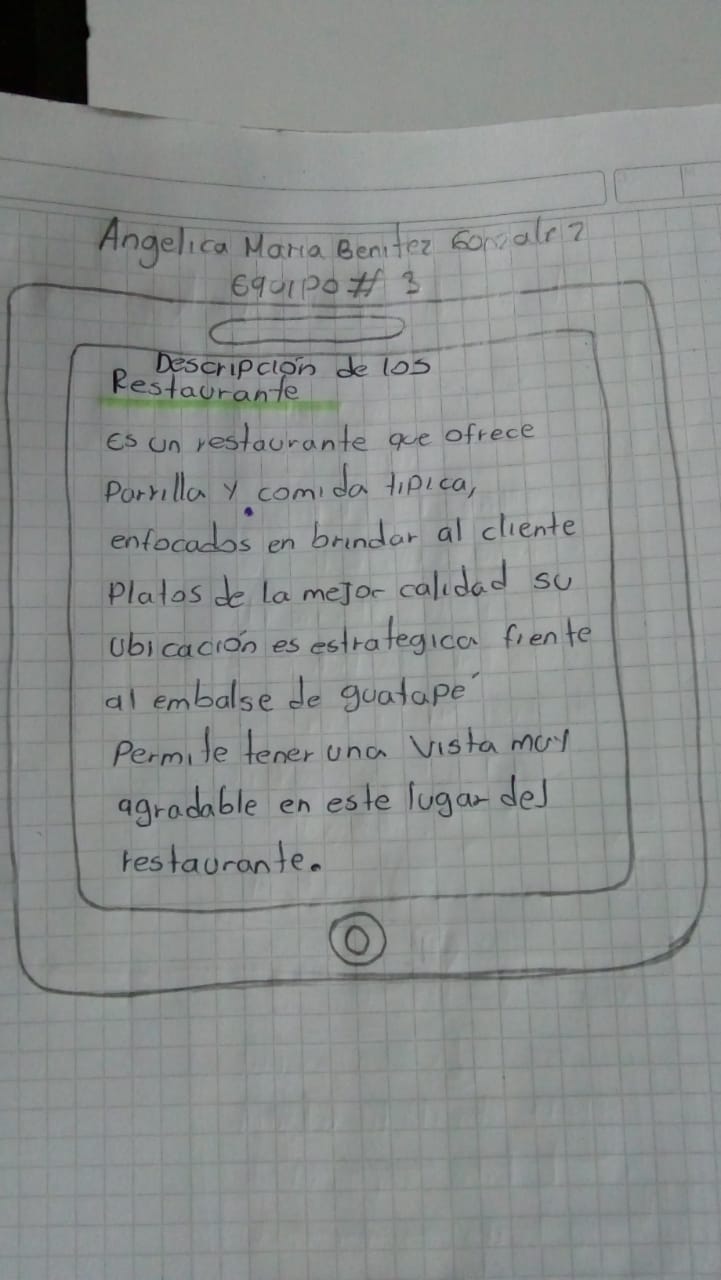 Angelica Maria Benitez Gonzalez
Equipo # 3
Descripción de los
Restaurante
Es un restaurante que ofrece
Parrilla y comida tipica,
enfocados en brindar al cliente
Platos de la mejor calidad su
Ubicación es estrategica frente
al embalse de guatapé
Permite tener una vista muy
agradable en este lugar del
restaurante.